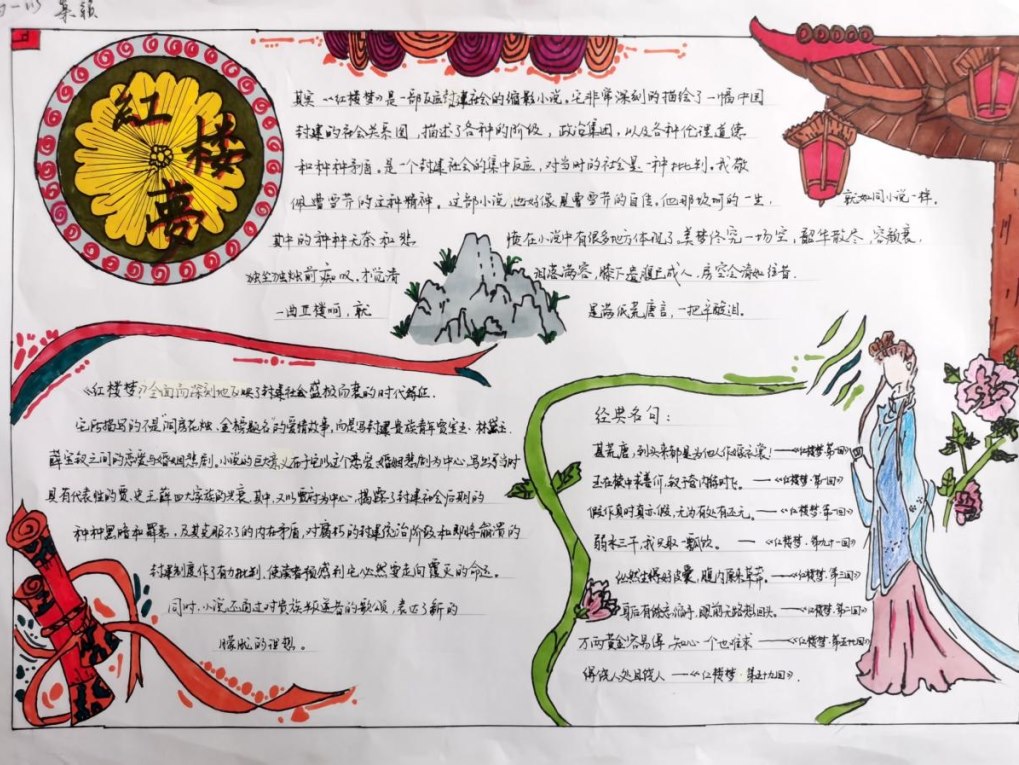 红楼梦
其实《红楼梦》是一部反应封建社会的缩影小说。它非常深刻的描绘了一幅中国
封建的社会关系图，描述了各种的阶级，政治集团，以及各种伦理道德
和种种矛盾。是一个封建社会的集中反应，对当时的社会是一种批判。我敬
佩曹雪芹的这种精神。这部小说，也好像是曹雪芹的自传。他那坎坷的一生，就如同小说一样。
其中的种种无奈和悲愤在小说中有很多地方体现了。美梦终究一场空，韶华散尽，容颜衰，
独坐独烛前哀叹，才觉清泪凄满容，膝下遗腹已成人，房空念清如往昔。
一曲红楼呵，就是满纸荒唐言，一把辛酸泪。
《红楼梦》全面而深刻地反映了封建社会盛极而衰的时代特征。
它所描写的不是"洞房花烛、金榜题名"的爱情故事，而是写封建贵族青年贾宝玉、林黛玉、
薛宝钗之间的恋爱与婚姻悲剧。小说的巨大意义在于它以这个恋爱、婚姻悲剧为中心，写出了当时
具有代表性的贾、史、王、薛四大家族的兴衰，其中，又以贾府为中心，揭露了封建社会后期的
种种黑暗和罪恶，及其克服不了的内在矛盾，对腐朽的封建统治阶级和即将崩溃的
封建制度作了有力批判，使读者预感到它必然要走向覆灭的命运。
同时，小说还通过对贵族叛逆者的歌颂，表达了新的
朦胧的理想。
经典名句：
甚荒唐，到头来都是为他人作嫁衣裳！——《红楼梦·第一回》
玉在椟中求善价，钗于奁内待时飞。——《红楼梦·第一回》
假作真时真亦假，无为有处有还无。——《红楼梦·第一回》
弱水三千，我只取一瓢饮。——《红楼梦·第九十一回》
纵然生得好皮囊，腹内原来草莽。——《红楼梦·第三回》
身后有余忘缩手，眼前无路想回头。——《红楼梦·第二回》
万两黄金容易得，知心一个也难求——《红楼梦·第五十七回》
得饶人处且饶人——《红楼梦·第五十九回》.